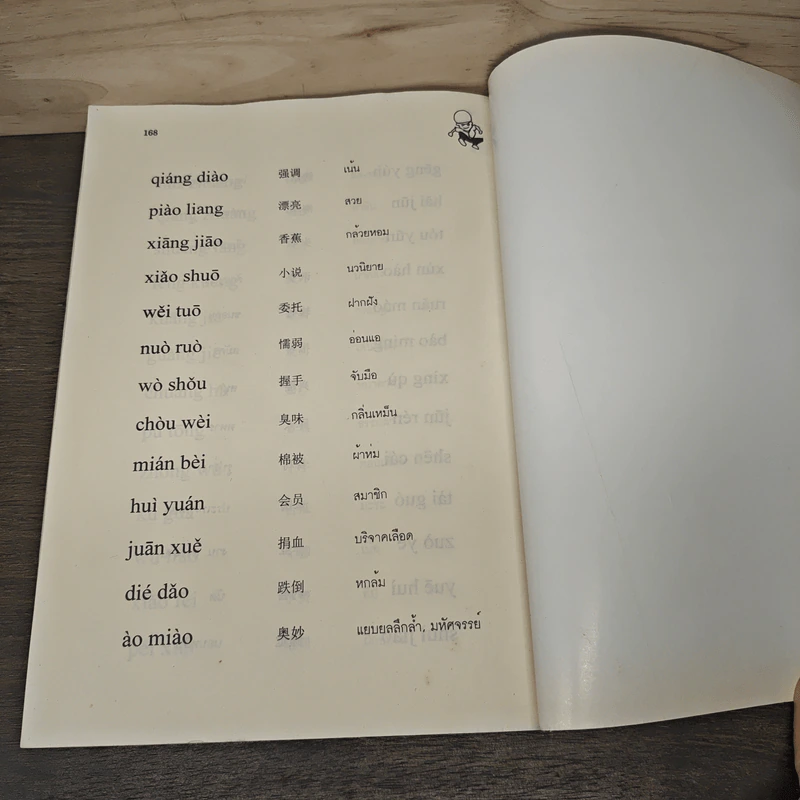 168
qiáng diào 强调 เน้น
piào liang 漂亮 สวย
xiāng jiāo 香蕉 กล้วยหอม
xiǎo shuō 小说 นวนิยาย
wěi tuō 委托 ฝากฝัง
nuò ruò 懦弱 อ่อนแอ
wò shǒu 握手 จับมือ
chòu wèi 臭味 กลิ่นเหม็น
mián bèi 棉被 ผ้าห่ม
huì yuán 会员 สมาชิก
juān xuě 捐血 บริจาคเลือด
dié dǎo 跌倒 หกล้ม
ào miào 奥妙 แยบยลลึกล้ำ, มหัศจรรย์